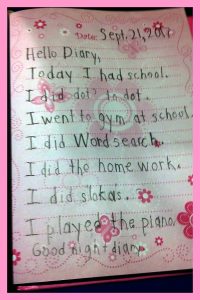 Date: Sept. 21, 20
Hello Diary,
Today I had school.
I did dot? to dot.
I went to gym at school.
I did Word search.
I did the home work.
I did slokas.
I played the piano.
Good night diary.